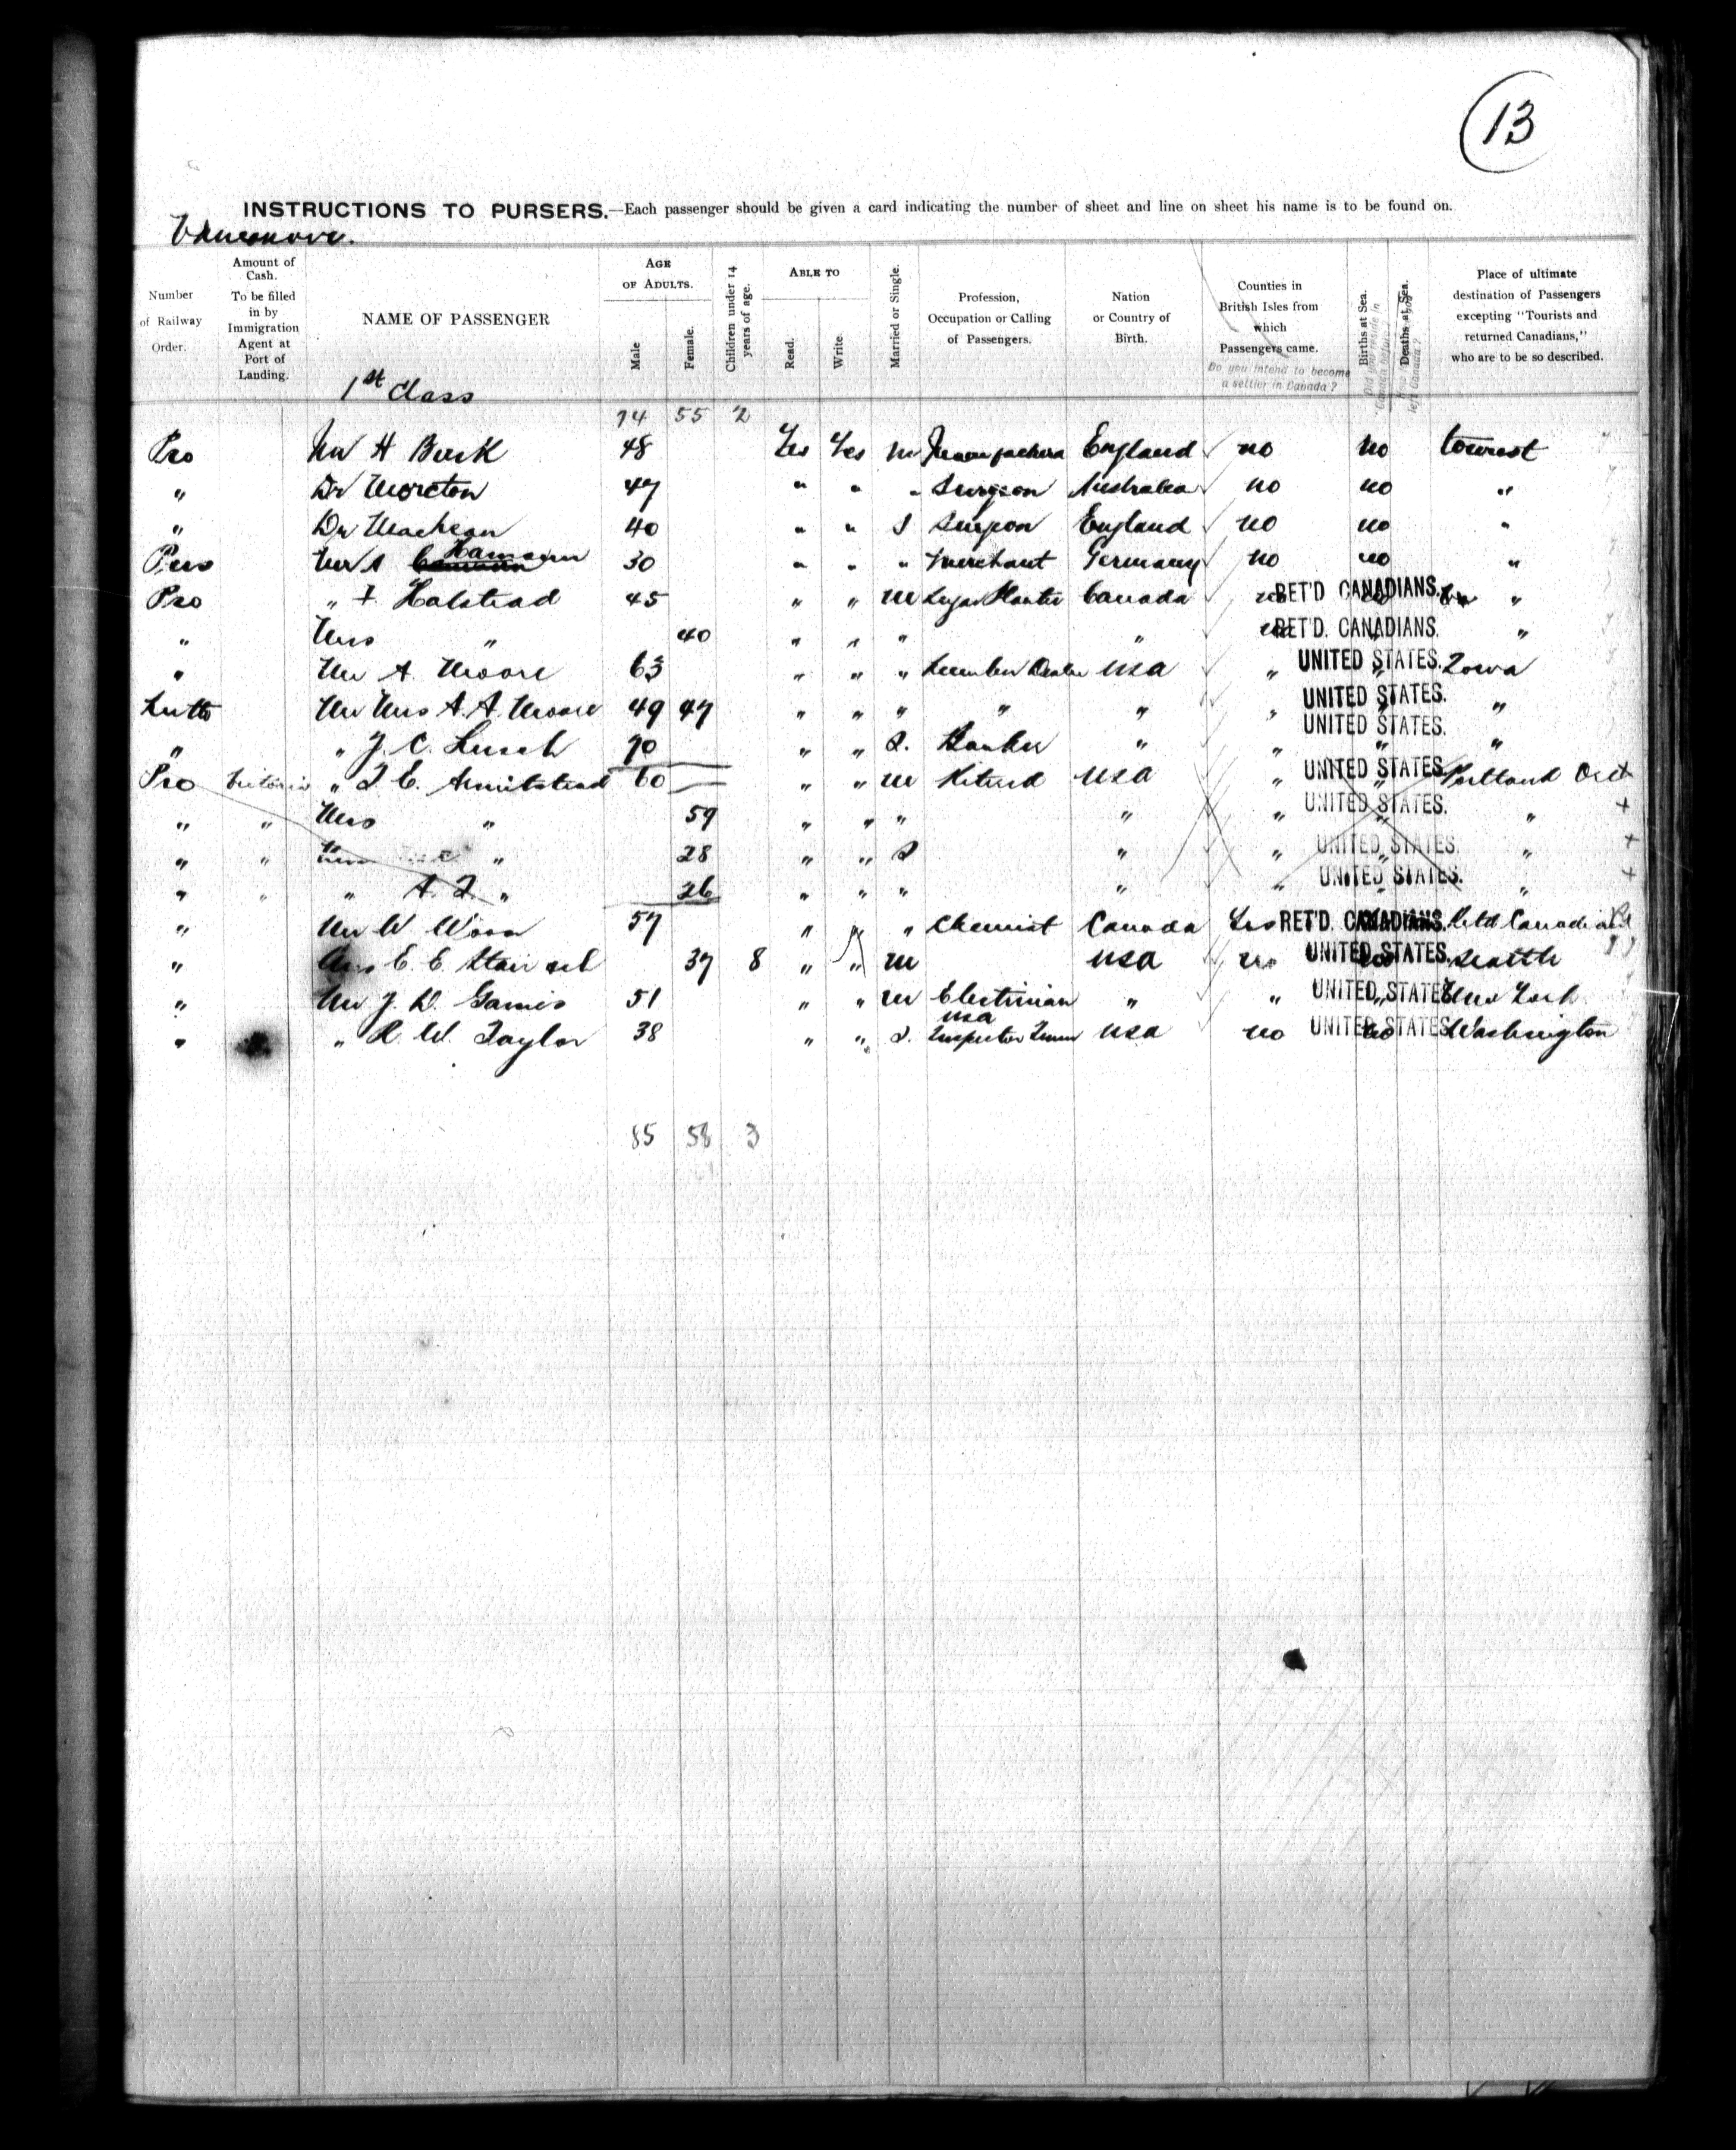 13
INSTRUCTIONS TO PURSERS.—Each passenger should be given a card indicating the number of sheet and line on sheet his name is to be found on.
Vancouver.
Number of Railway Order.
Amount of Cash. To be filled in by Immigration Agent at Port of Landing.
NAME OF PASSENGER
AGE OF ADULTS.
Male
Female.
Children under 14 years of age.
ABLE TO
Read.
Write.
Married or Single.
Profession, Occupation or Calling of Passengers.
Nation or Country of Birth.
Counties in British Isles from which Passengers came.
Do you intend to become a settler in Canada?
Births at Sea.
Deaths at Sea.
Place of ultimate destination of Passengers excepting "Tourists and returned Canadians," who are to be so described.
1st Class
74 55 2
Pro Mr H Buck 48 Yes Yes m England no no tourist
" Dr Moreton 47 " " " Surgeon Australia no no "
" Dr 40 " " S Surgeon England no no "
Mr A Hamann 30 " " " Merchant Germany no no "
Pro " Halstead 45 " " m Sugar Planter Canada RET'D CANADIANS. "
" Mrs " 40 " " " " RET'D. CANADIANS. "
" Mr A. Moore 63 " " " Lumber Dealer USA " UNITED STATES. Iowa
Mr Mrs A. A. Moore 49 47 " " " " " " UNITED STATES. "
" " J. C. 70 " " S. Banker " " UNITED STATES. "
Pro Victoria " T. C. Armitstead 60 " " m Retired USA " UNITED STATES. Portland
" " Mrs " 59 " " " " " UNITED STATES. "
" " " 28 " " S " " UNITED STATES. "
" " " A. T. " 26 " " " " " UNITED STATES. "
" Mr W Wood 57 " " " Chemist Canada Yes RET'D. CANADIANS. Retd Canadian
" Mrs C. E. 37 8 " " m USA no UNITED STATES. Seattle
" Mr J. D. 51 " " m Electrician " " UNITED STATES New York
" " R. W. Taylor 38 " " S. USA Inspector USA no UNITED STATES no Washington
85 58 3